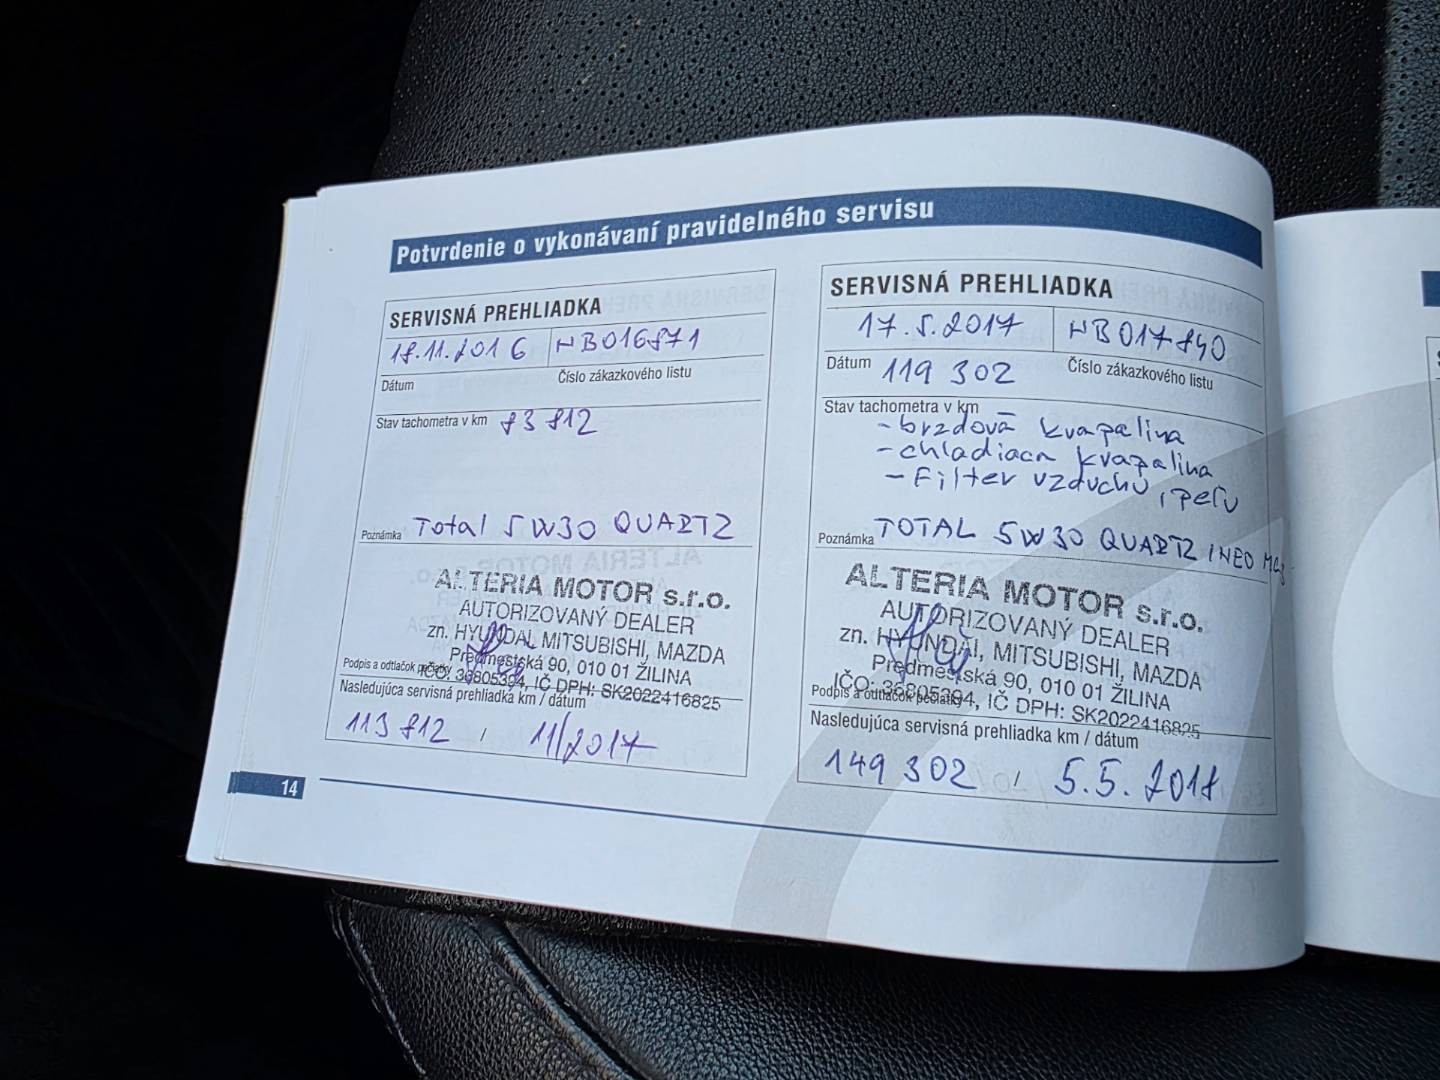 Potvrdenie o vykonávaní pravidelného servisu
SERVISNÁ PREHLIADKA
18.11.2016 HB016871
Dátum Číslo zákazkového listu
Stav tachometra v km 83 812
Poznámka Total 5W30 QUARTZ
ALTERIA MOTOR s.r.o.
AUTORIZOVANÝ DEALER
zn. HYUNDAI, MITSUBISHI, MAZDA
Predmestská 90, 010 01 ŽILINA
Podpis a odtlačok pečiatky
IČO: 36805394, IČ DPH: SK2022416825
Nasledujúca servisná prehliadka km / dátum
113 812 / 11/2017
14
SERVISNÁ PREHLIADKA
17.5.2017 HB017840
Dátum Číslo zákazkového listu
119 302
Stav tachometra v km
- brzdová kvapalina
- chladiaca kvapalina
- Filter vzduchu, peľu
Poznámka TOTAL 5W30 QUARTZ INEO
ALTERIA MOTOR s.r.o.
AUTORIZOVANÝ DEALER
zn. HYUNDAI, MITSUBISHI, MAZDA
Predmestská 90, 010 01 ŽILINA
IČO: 36805394, IČ DPH: SK2022416825
Podpis a odtlačok pečiatky
Nasledujúca servisná prehliadka km / dátum
149 302 / 5.5.2018